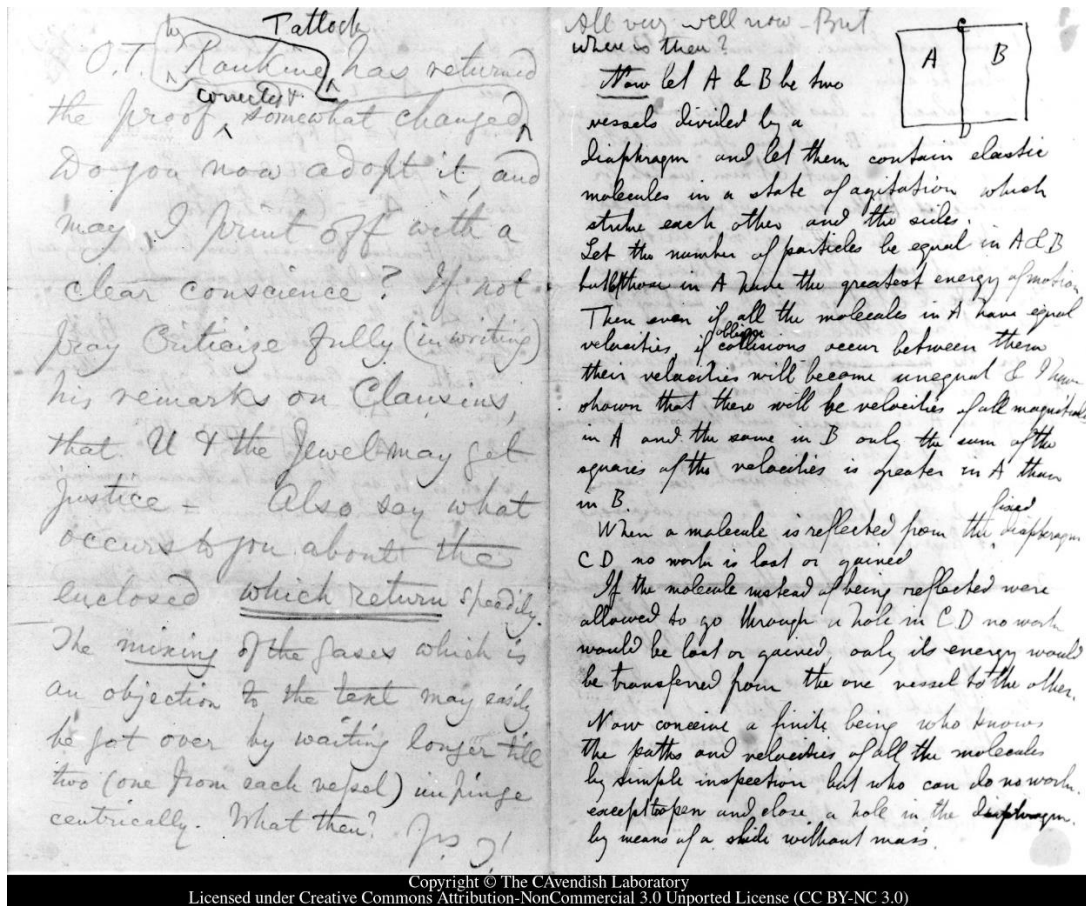 by Tatlock
O.T. Rankine has returned
corrected &
the proof, somewhat changed,
Do you now adopt it, and
may I print off with a
clear conscience? If not
pray criticize fully (in writing)
his remarks on Clausius,
that U & the Jewel may get
justice – Also say what
occurs to you about the
enclosed which return speedily.
The mixing of the gases which is
an objection to the text may easily
be got over by waiting longer till
two (one from each vessel) impinge
centrically. What then?
All very well now – But
where is then?
C
A B
D
Now let A & B be two
vessels divided by a
diaphragm and let them contain elastic
molecules in a state of agitation which
strike each other and the sides.
Let the number of particles be equal in A & B
but let those in A have the greatest energy of motion
Then even if all the molecules in A have equal
oblique
velocities, if collisions occur between them
their velocities will become unequal & I have
shown that there will be velocities of all magnitudes
in A and the same in B only the sum of the
squares of the velocities is greater in A than
in B.
fixed
When a molecule is reflected from the diaphragm
CD no work is lost or gained
If the molecule instead of being reflected were
allowed to go through a hole in CD no work
would be lost or gained, only its energy would
be transferred from the one vessel to the other.
Now conceive a finite being who knows
the paths and velocities of all the molecules
by simple inspection but who can do no work,
except to open and close a hole in the diaphragm,
by means of a slide without mass.
Copyright © The CAvendish Laboratory
Licensed under Creative Commons Attribution-NonCommercial 3.0 Unported License (CC BY-NC 3.0)